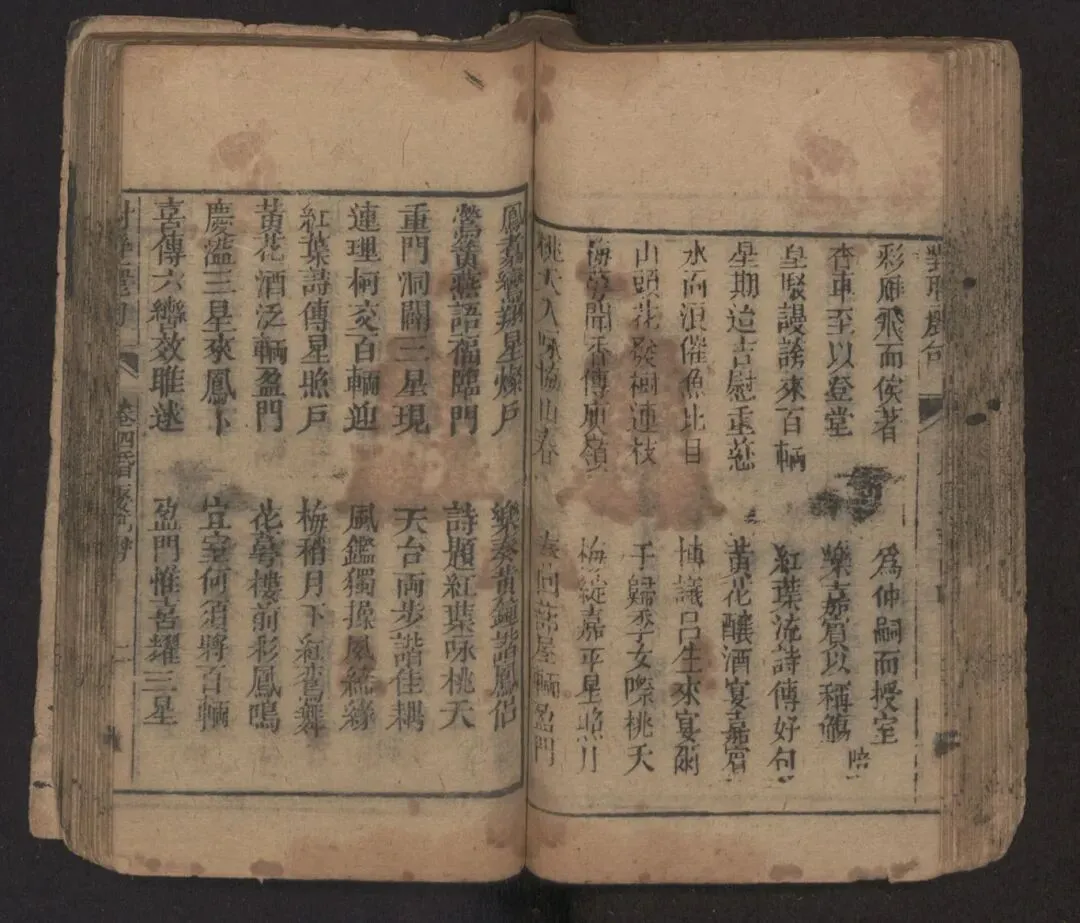 彩雁飛而俟著 為仲嗣而授室
車至以登堂 樂嘉賓以稱觴
皇駁謾誇來百輛 紅葉流詩傳好句
星期迨吉慰重慈 黃花釀酒宴嘉賓
水面浪催魚比目 博議呂生來宴爾
山頭花發樹連枝 于歸季女際桃夭
梅夢聞香傳庾嶺 梅綻嘉平星照戶
桃夭入咏協山春 春回蔀屋輛盈門
鳳翥鸞翔星燦戶 樂奏黃鐘諧鳳侶
鶯簧燕語福臨門 詩題紅葉咏桃夭
重門洞闢三星現 天台兩步諧佳耦
連理柯交百輛迎 風鑑獨操夙締緣
紅葉詩傳星照戶 梅稍月下紅鸞舞
黃花酒泛輛盈門 花萼樓前彩鳳鳴
慶溢三星來鳳卜 宜室何須將百輛
喜傳六轡效雎逑 盈門惟喜耀三星
卷四